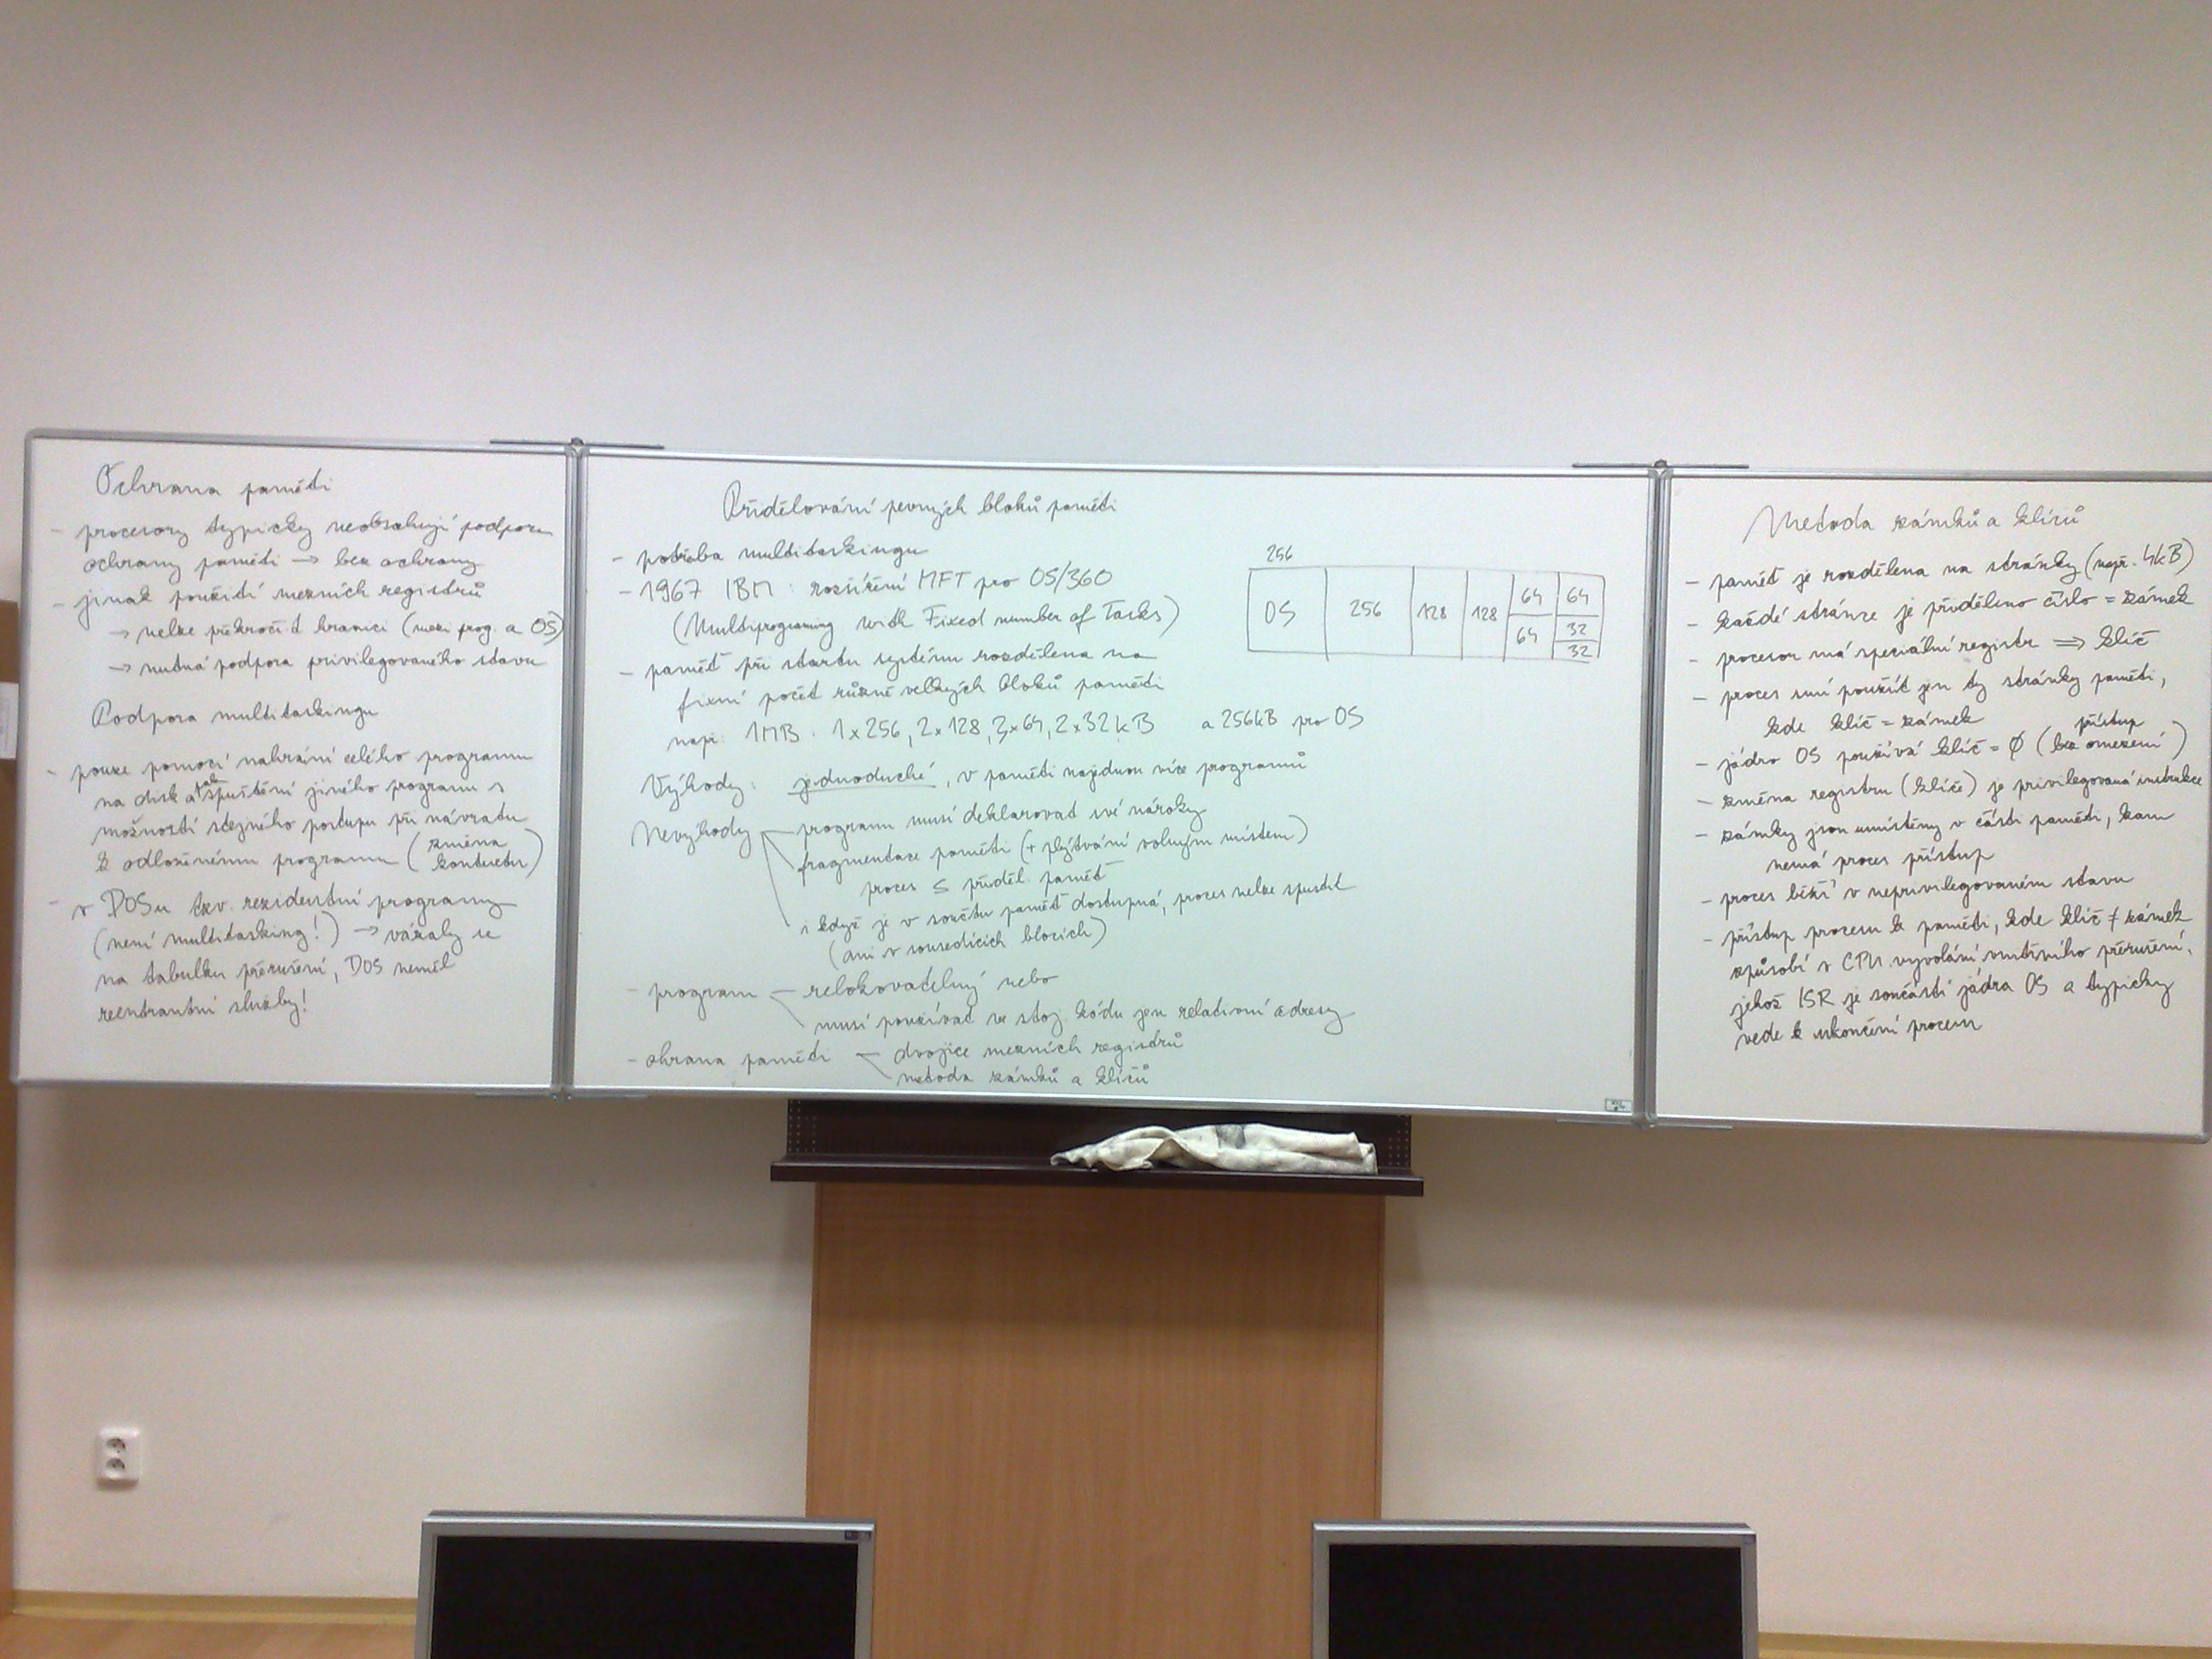 Ochrana paměti
- procesory typicky neobsahují podporu
ochrany paměti → bez ochrany
- jinak použití mezních registrů
→ nelze překročit hranici (mezi prog. a OS)
→ nutná podpora privilegovaného stavu
Podpora multitaskingu
- pouze pomocí nahrání celého programu
na disk a spuštění jiného programu s
možností stejného postupu při návratu
k odloženému programu (změna kontextu)
- v DOSu tzv. rezidentní programy
(není multitasking!) → vázaly se
na tabulku přerušení, DOS neměl
reentrantní služby!
Přidělování pevných bloků paměti
- potřeba multitaskingu
- 1967 IBM: rozšíření MFT pro OS/360
(Multiprograming with Fixed number of Tasks)
- paměť při startu systému rozdělena na
fixní počet různě velkých bloků paměti
např. 1MB: 1x256, 2x128, 3x64, 2x32kB a 256kB pro OS
256
OS 256 128 128 64 64
64 32
32
Výhody: jednoduché, v paměti najednou více programů
Nevýhody - programu musí deklarovat své nároky
fragmentace paměti (+ plýtvání volným místem)
proces ≤ příděl. paměť
i když je v součtu paměť dostupná, proces nelze spustit
(ani v sousedících blocích)
- program - relokovatelný nebo
musí používat ve stoj. kódu jen relativní adresy
- ohrana paměti - dvojice mezních registrů
metoda zámků a klíčů
Metoda zámků a klíčů
- paměť je rozdělena na stránky (např. 4kB)
- každé stránce je přiděleno číslo = zámek
- procesor má speciální registr ⇒ klíč
- proces smí použít jen ty stránky paměti,
kde klíč = zámek
- jádro OS používá klíč = Ø (přístup bez omezení)
- změna registru (klíče) je privilegovaná instrukce
- zámky jsou umístěny v části paměti, kam
nemá proces přístup
- proces běží v neprivilegovaném stavu
- přístup procesu k paměti, kde klíč ≠ zámek
způsobí v CPU vyvolání vnitřního přerušení,
jehož ISR je součástí jádra OS a typicky
vede k ukončení procesu